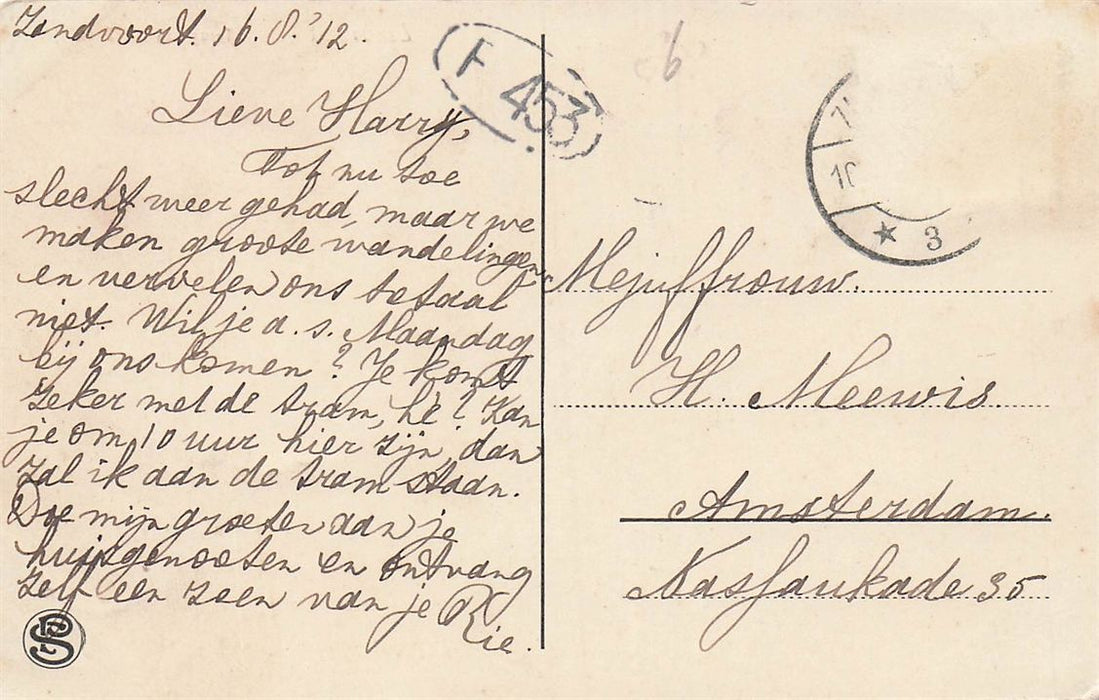 Zandvoort. 16.8.'12.
Lieve Harry,
Tot nu toe
slecht weer gehad, maar we
maken groote wandelingen
en vervelen ons totaal
niet. Wil je a.s. Maandag
bij ons komen? Je komt
zeker met de tram, hè? Kan
je om 10 uur hier zijn, dan
zal ik aan de tram staan.
Doe mijn groeten aan je
huisgenooten en ontvang
zelf een zoen van je Rie.
F 453
6
10
★ 3
Mejuffrouw.
H. Meewis.
Amsterdam.
Nassaukade 35